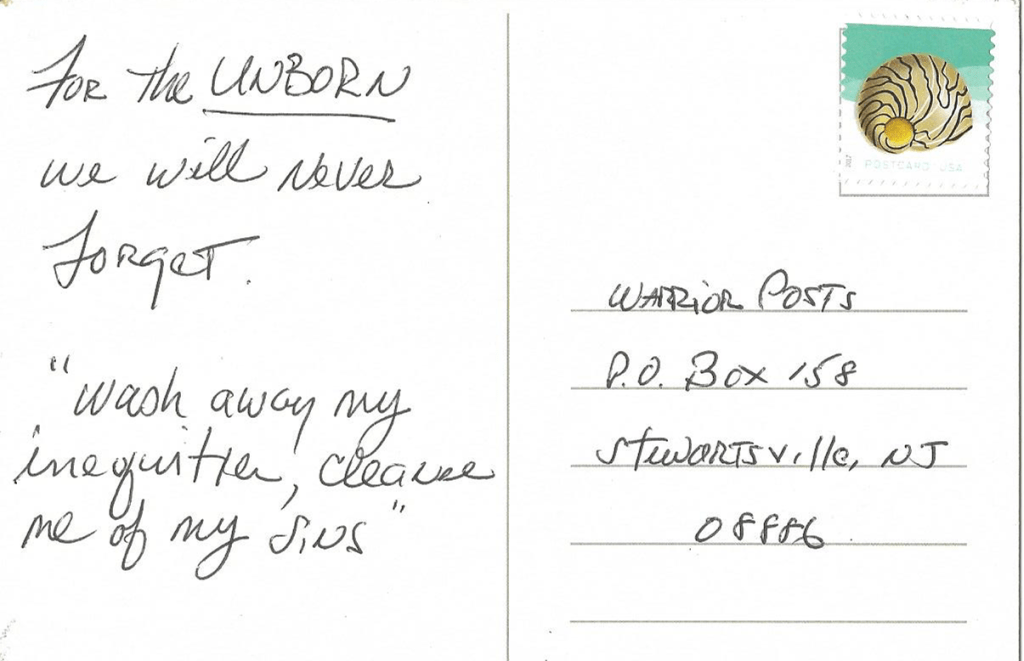 For the UNBORN
we will never
forget.
"wash away my
inequities, cleanse
me of my sins"
2017
POSTCARD USA
Warrior Posts
P.O. Box 158
Stewartsville, NJ
08886